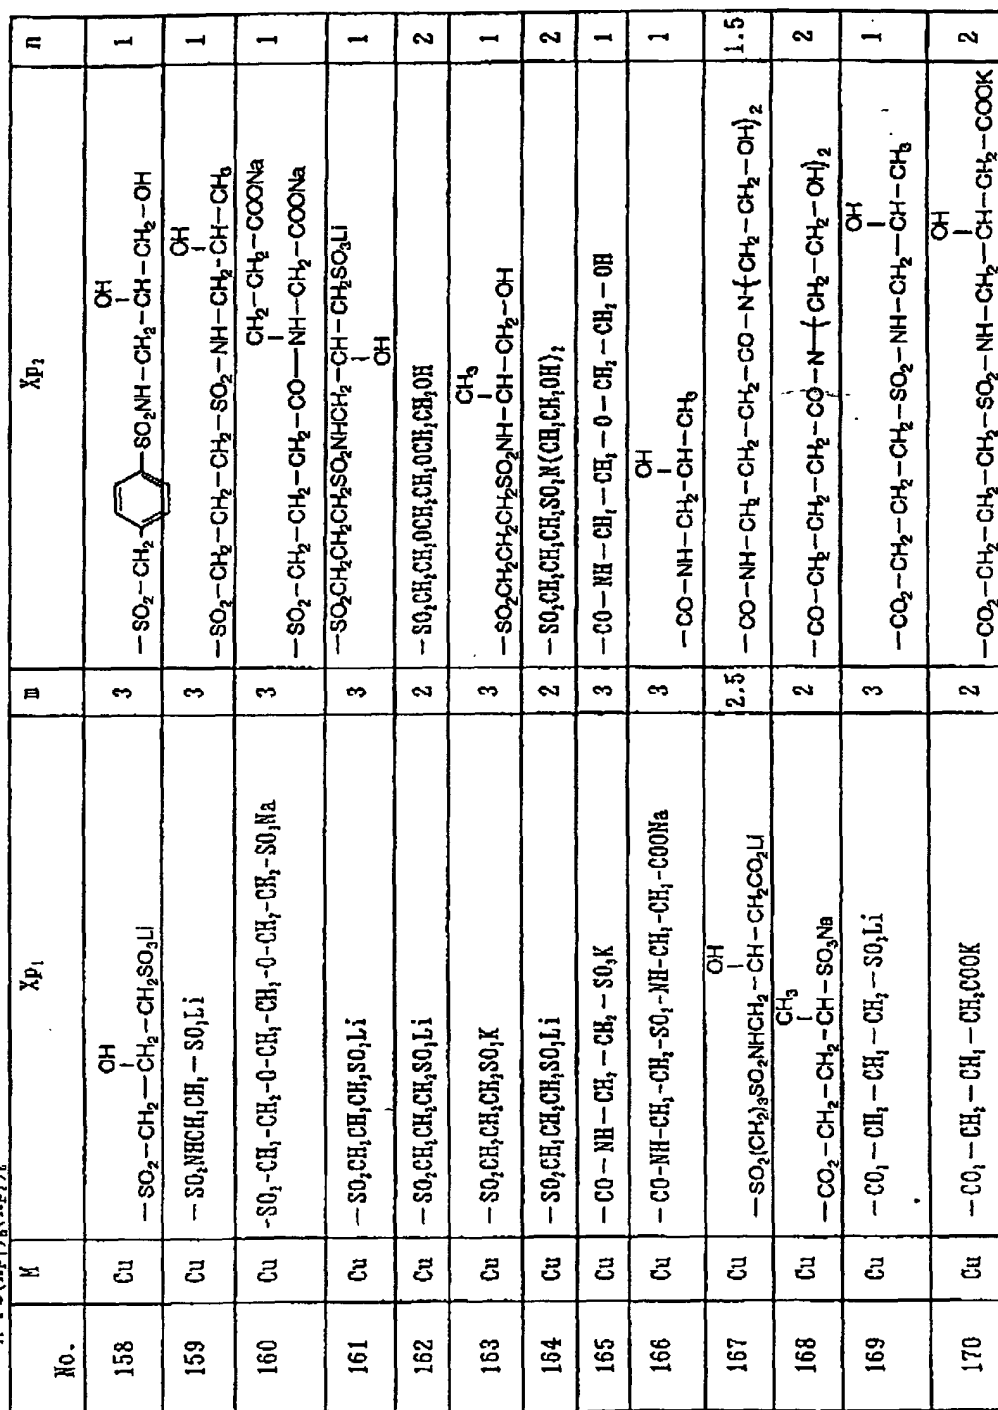 No. M Xp₁ m Xp₂ n
158 Cu OH 3 OH 1
—SO₂—CH₂—CH₂—CH₂SO₃Li —SO₂—CH₂— —SO₂NH—CH₂—CH—CH₂—OH
159 Cu —SO₂NHCH₂CH₂—SO₃Li 3 OH 1
—SO₂—CH₂—CH₂—CH₂—SO₂—NH—CH₂—CH—CH₃
160 Cu -SO₂-CH₂-CH₂-O-CH₂-CH₂-O-CH₂-CH₂-SO₃Na 3 CH₂—CH₂—COONa 1
—SO₂—CH₂—CH₂—CH₂—CO—NH—CH₂—COONa
161 Cu —SO₂CH₂CH₂CH₂SO₃Li 3 —SO₂CH₂CH₂CH₂SO₂NHCH₂—CH—CH₂SO₃Li 1
OH
162 Cu —SO₂CH₂CH₂CH₂SO₃Li 2 —SO₂CH₂CH₂OCH₂CH₂OCH₂CH₂OH 2
163 Cu —SO₂CH₂CH₂CH₂SO₃K 3 CH₃ 1
—SO₂CH₂CH₂CH₂SO₂NH—CH—CH₂—OH
164 Cu —SO₂CH₂CH₂CH₂SO₃Li 2 —SO₂CH₂CH₂CH₂SO₂N(CH₂CH₂OH)₂ 2
165 Cu —CO—NH—CH₂—CH₂—SO₃K 3 —CO—NH—CH₂—CH₂—O—CH₂—CH₂—OH 1
166 Cu —CO-NH-CH₂-CH₂-SO₂-NH-CH₂-CH₂-COONa 3 OH 1
—CO—NH—CH₂—CH—CH₃
167 Cu OH 2.5 1.5
—SO₂(CH₂)₃SO₂NHCH₂—CH—CH₂CO₂Li —CO—NH—CH₂—CH₂—CH₂—CO—N(CH₂—CH₂—OH)₂
168 Cu CH₃ 2 2
—CO₂—CH₂—CH₂—CH—SO₃Na —CO—CH₂—CH₂—CH₂—CO—N(CH₂—CH₂—OH)₂
169 Cu —CO₂—CH₂—CH₂—CH₂—SO₃Li 3 OH 1
—CO₂—CH₂—CH₂—CH₂—SO₂—NH—CH₂—CH—CH₃
170 Cu —CO₂—CH₂—CH₂—CH₂COOK 2 OH 2
—CO₂—CH₂—CH₂—CH₂—SO₂—NH—CH₂—CH—CH₂—COOK